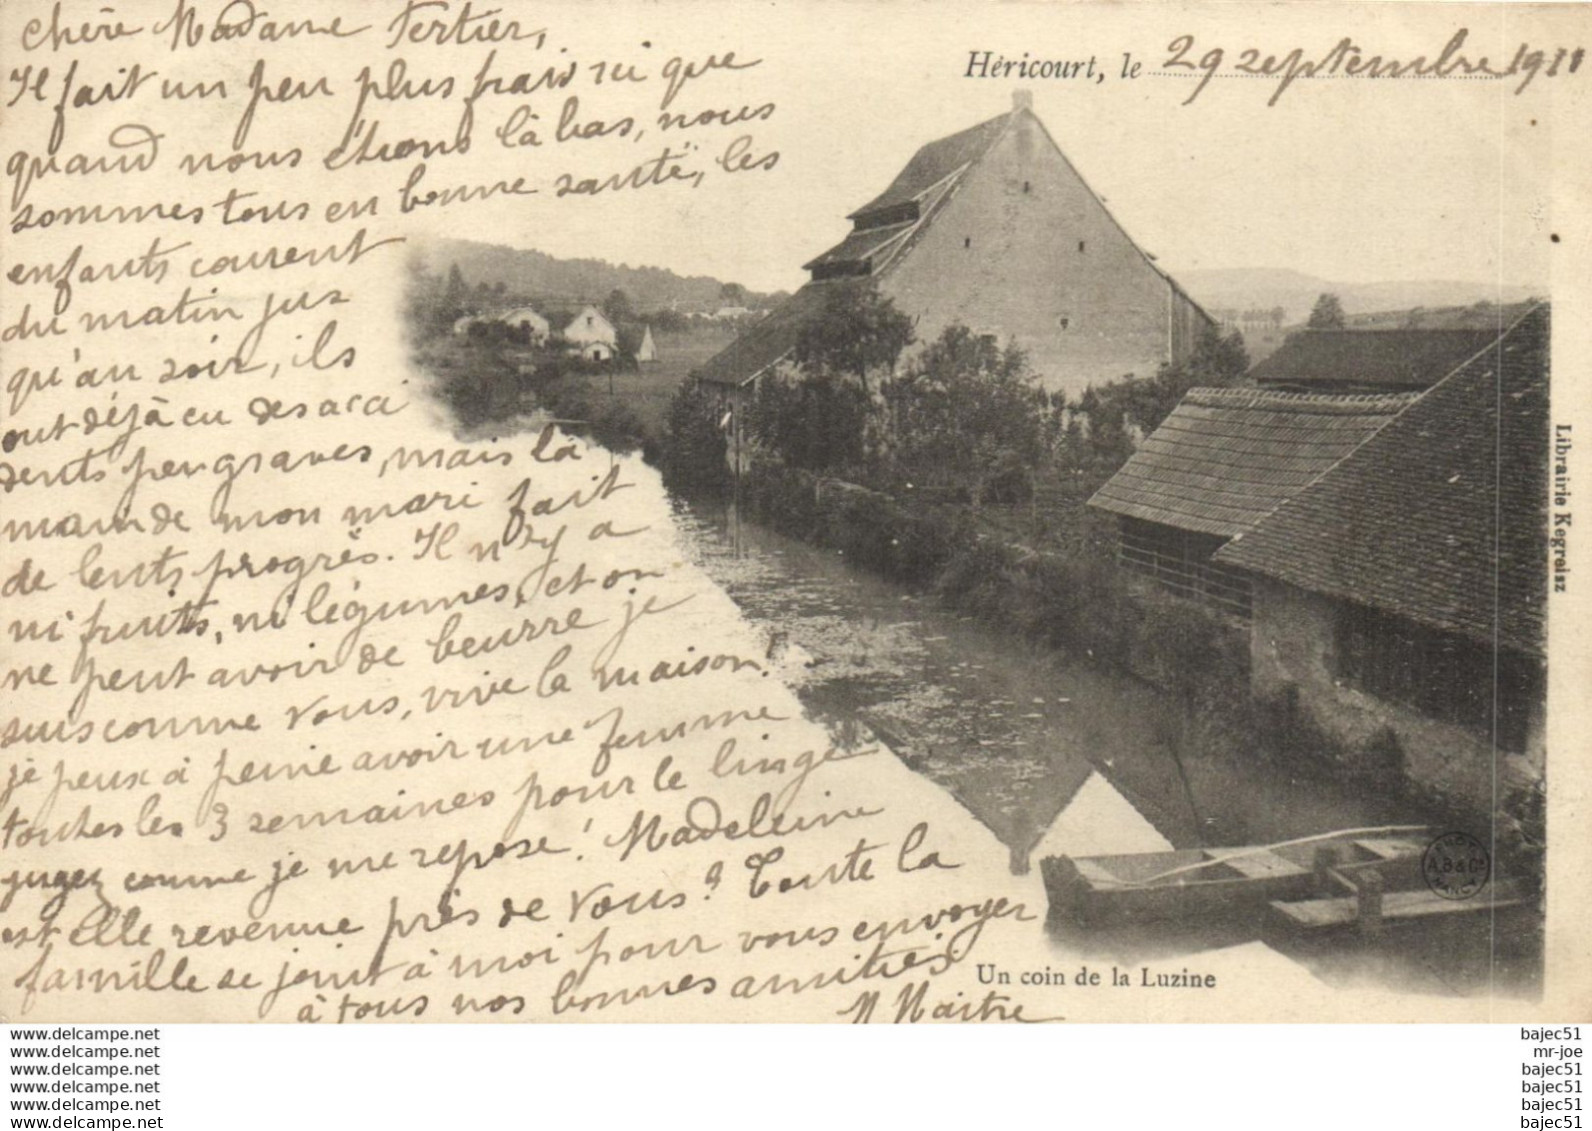 Héricourt, le 29 septembre 1911
Chère Madame Tertier,
Il fait un peu plus frais ici que
quand nous étions là bas, nous
sommes tous en bonne santé, les
enfants courent
du matin jus
qu'au soir, ils
ont déjà eu des acci
dents peu graves, mais la
main de mon mari fait
de lents progrès. Il n'y a
ni fruits, ni légumes, et on
ne peut avoir de beurre je
suis comme vous, vive la maison!
je peux à peine avoir une femme
toutes les 3 semaines pour le linge
jugez comme je me repose! Madeleine
est elle revenue près de vous? Toute la
famille se joint à moi pour vous envoyer
à tous nos bonnes amitiés
M Maitre
Un coin de la Luzine
Librairie Kegreisz
PHOT
A.B & Cie
NANCY
www.delcampe.net
www.delcampe.net
www.delcampe.net
www.delcampe.net
www.delcampe.net
www.delcampe.net
bajec51
mr-joe
bajec51
bajec51
bajec51
bajec51